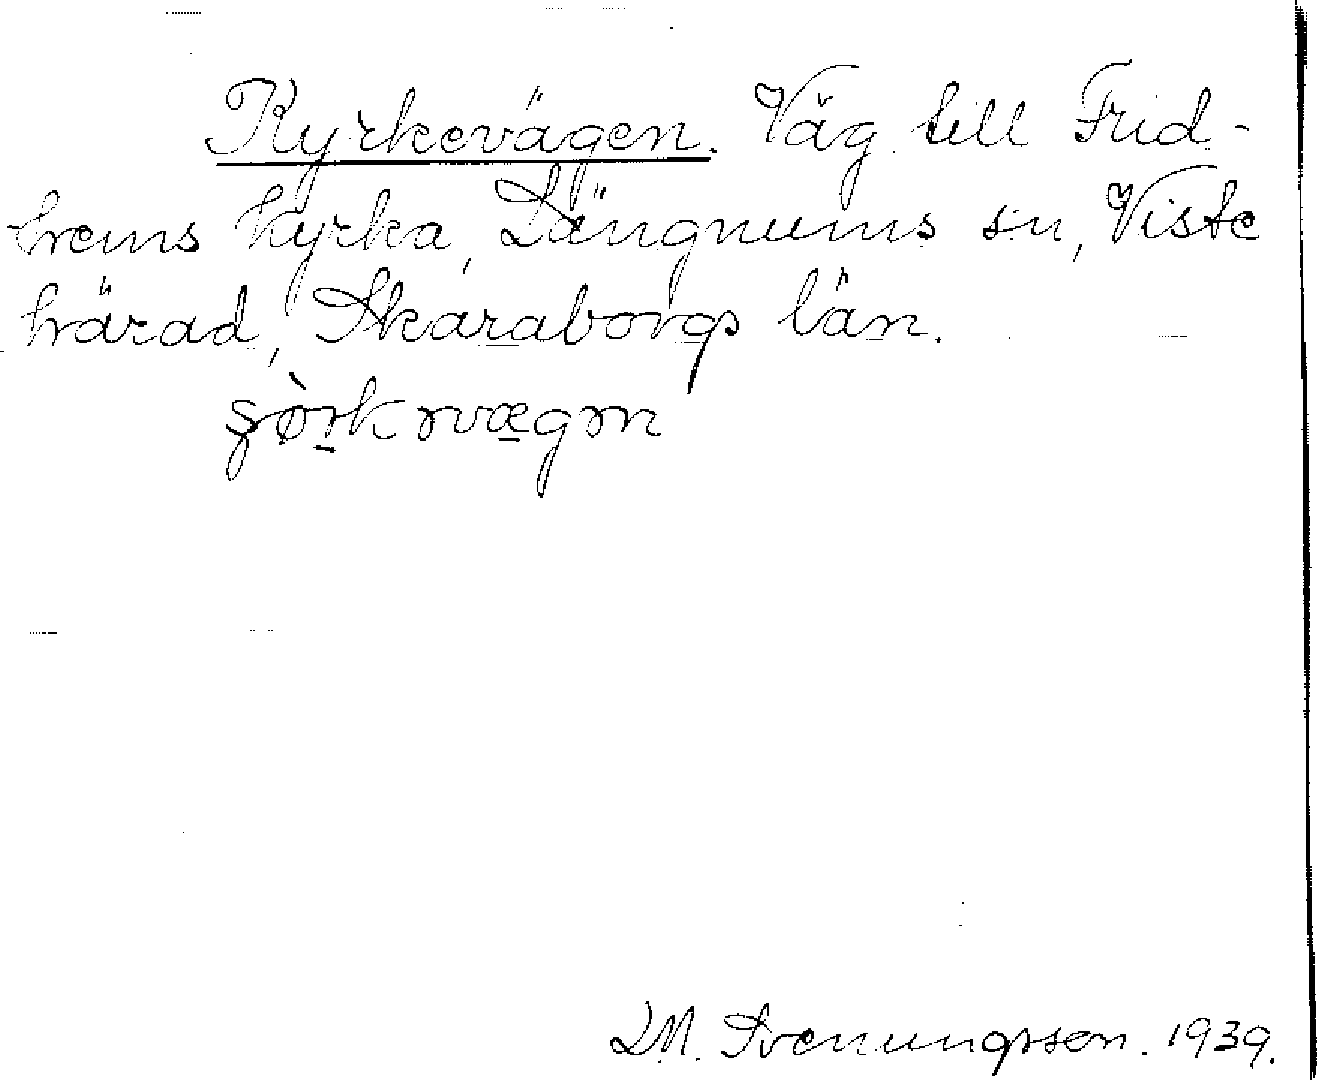 Kyrkevägen. Väg till Frid-
hems kyrka, Längnums sn, Viste
härad, Skaraborgs län.
D.M. Svenungsson. 1939.